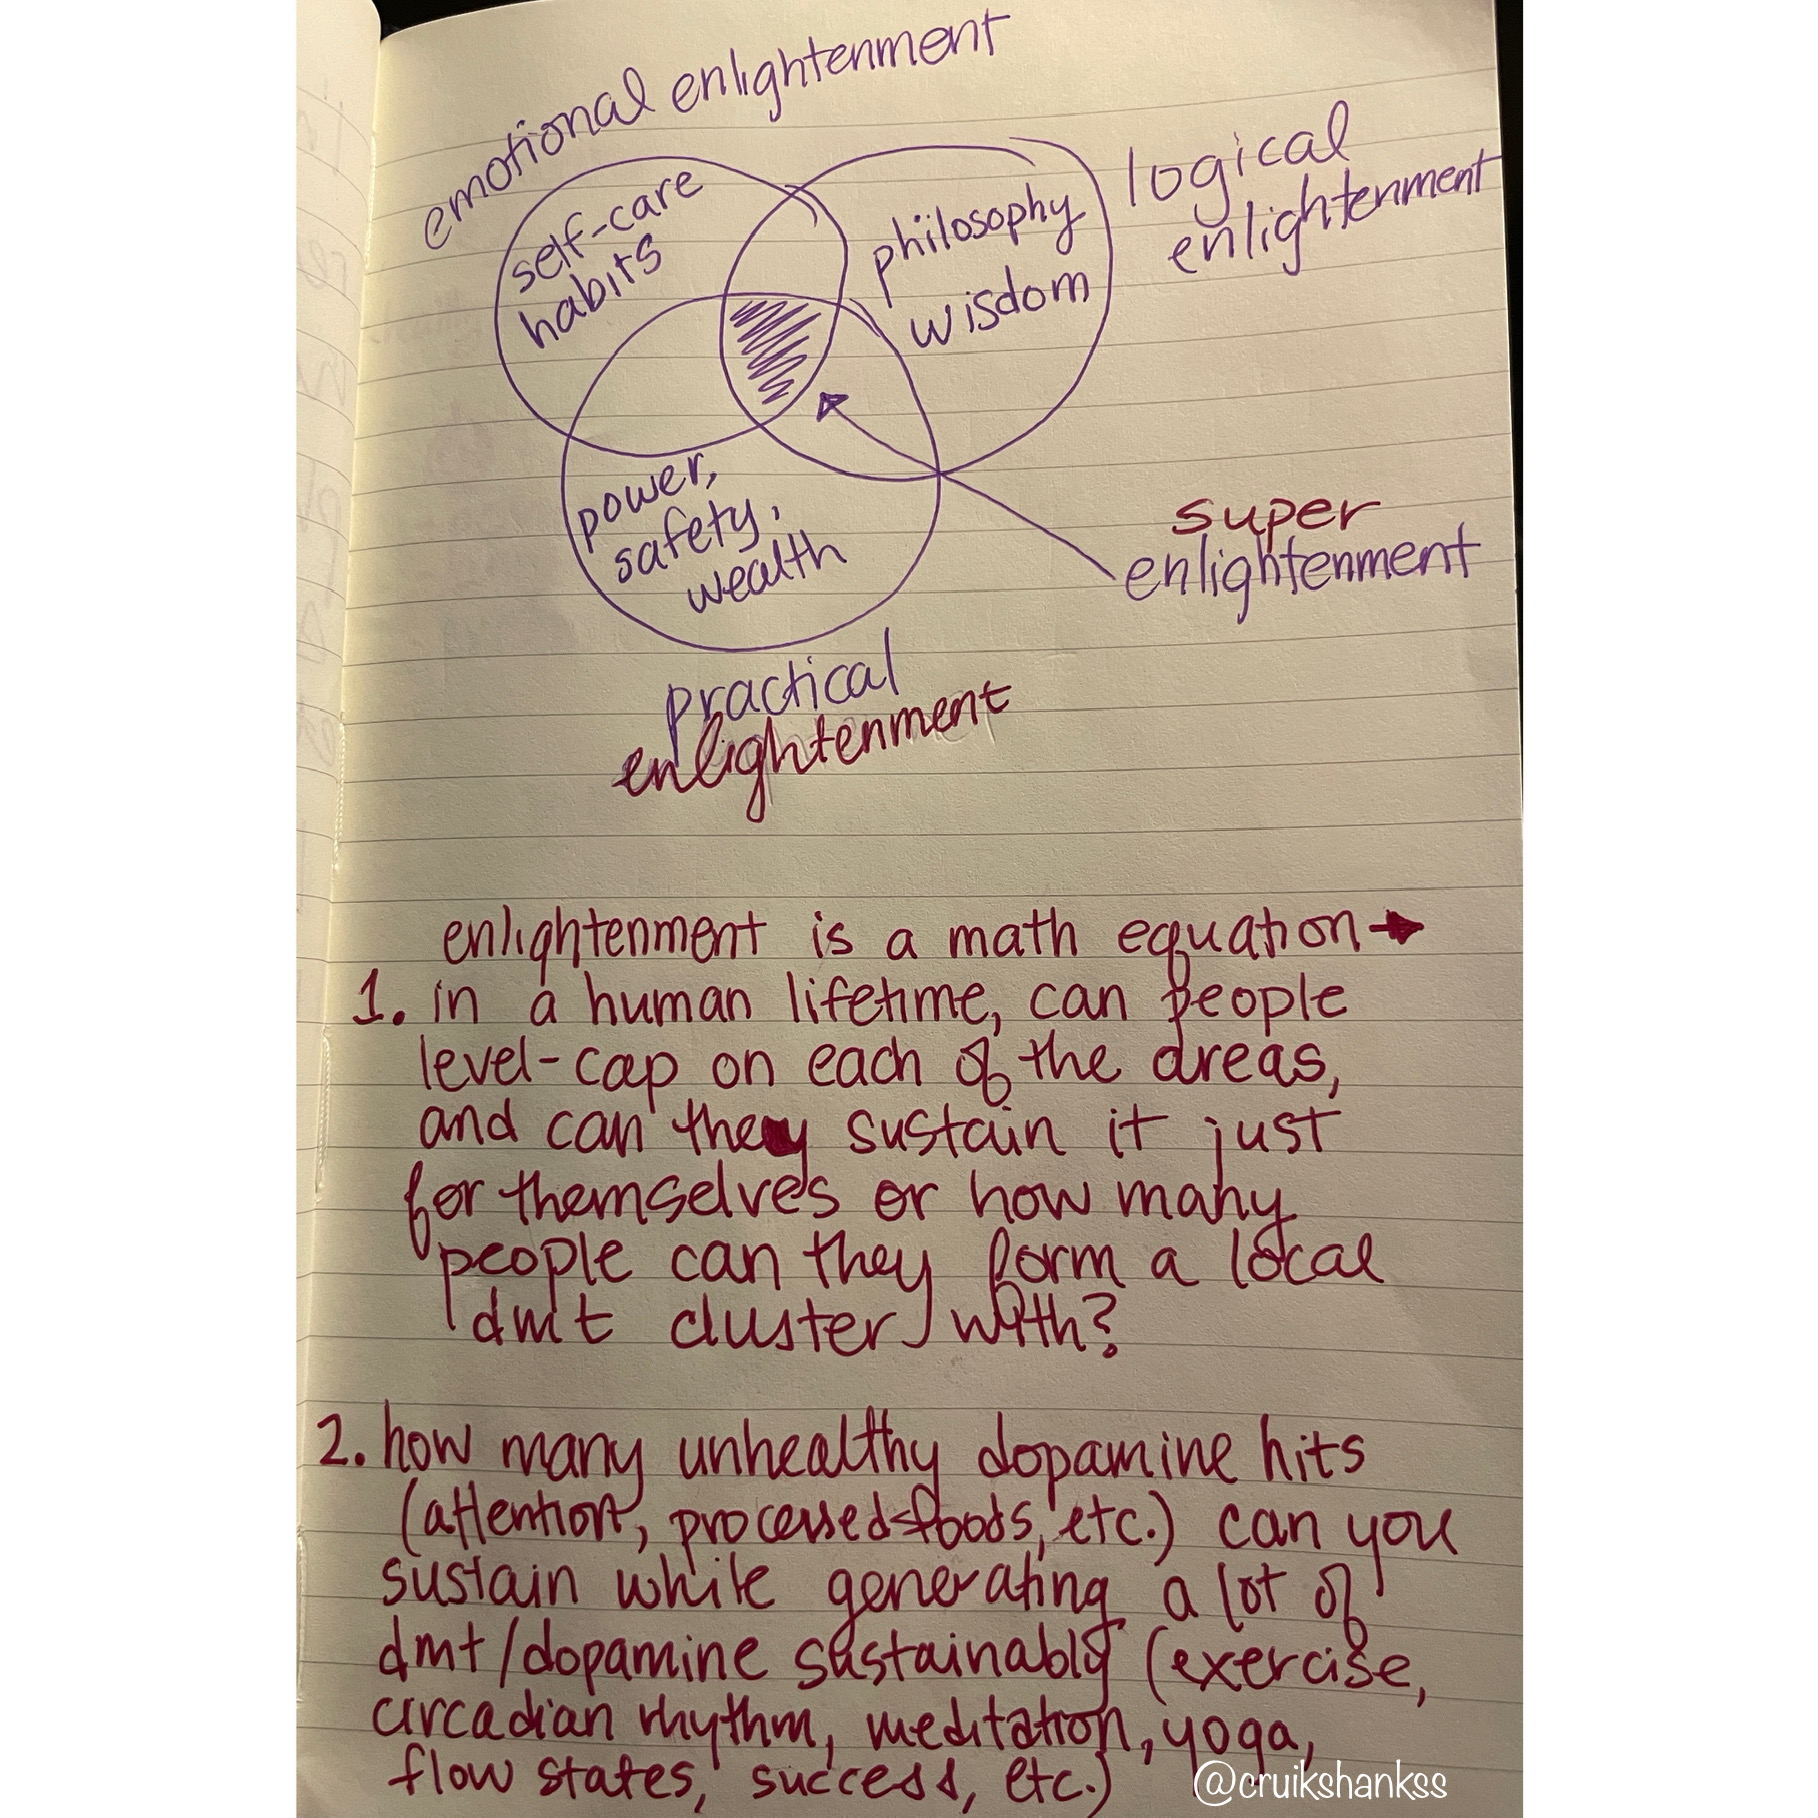 emotional enlightenment
self-care
habits
philosophy
wisdom
logical
enlightenment
power,
safety,
wealth
super
enlightenment
practical
enlightenment
enlightenment is a math equation →
1. in a human lifetime, can people
level-cap on each of the areas,
and can they sustain it just
for themselves or how many
people can they form a local
dmt cluster with?
2. how many unhealthy dopamine hits
(attention, processed foods, etc.) can you
sustain while generating a lot of
dmt/dopamine sustainably (exercise,
circadian rhythm, meditation, yoga,
flow states, success, etc.)
@cruikshankss